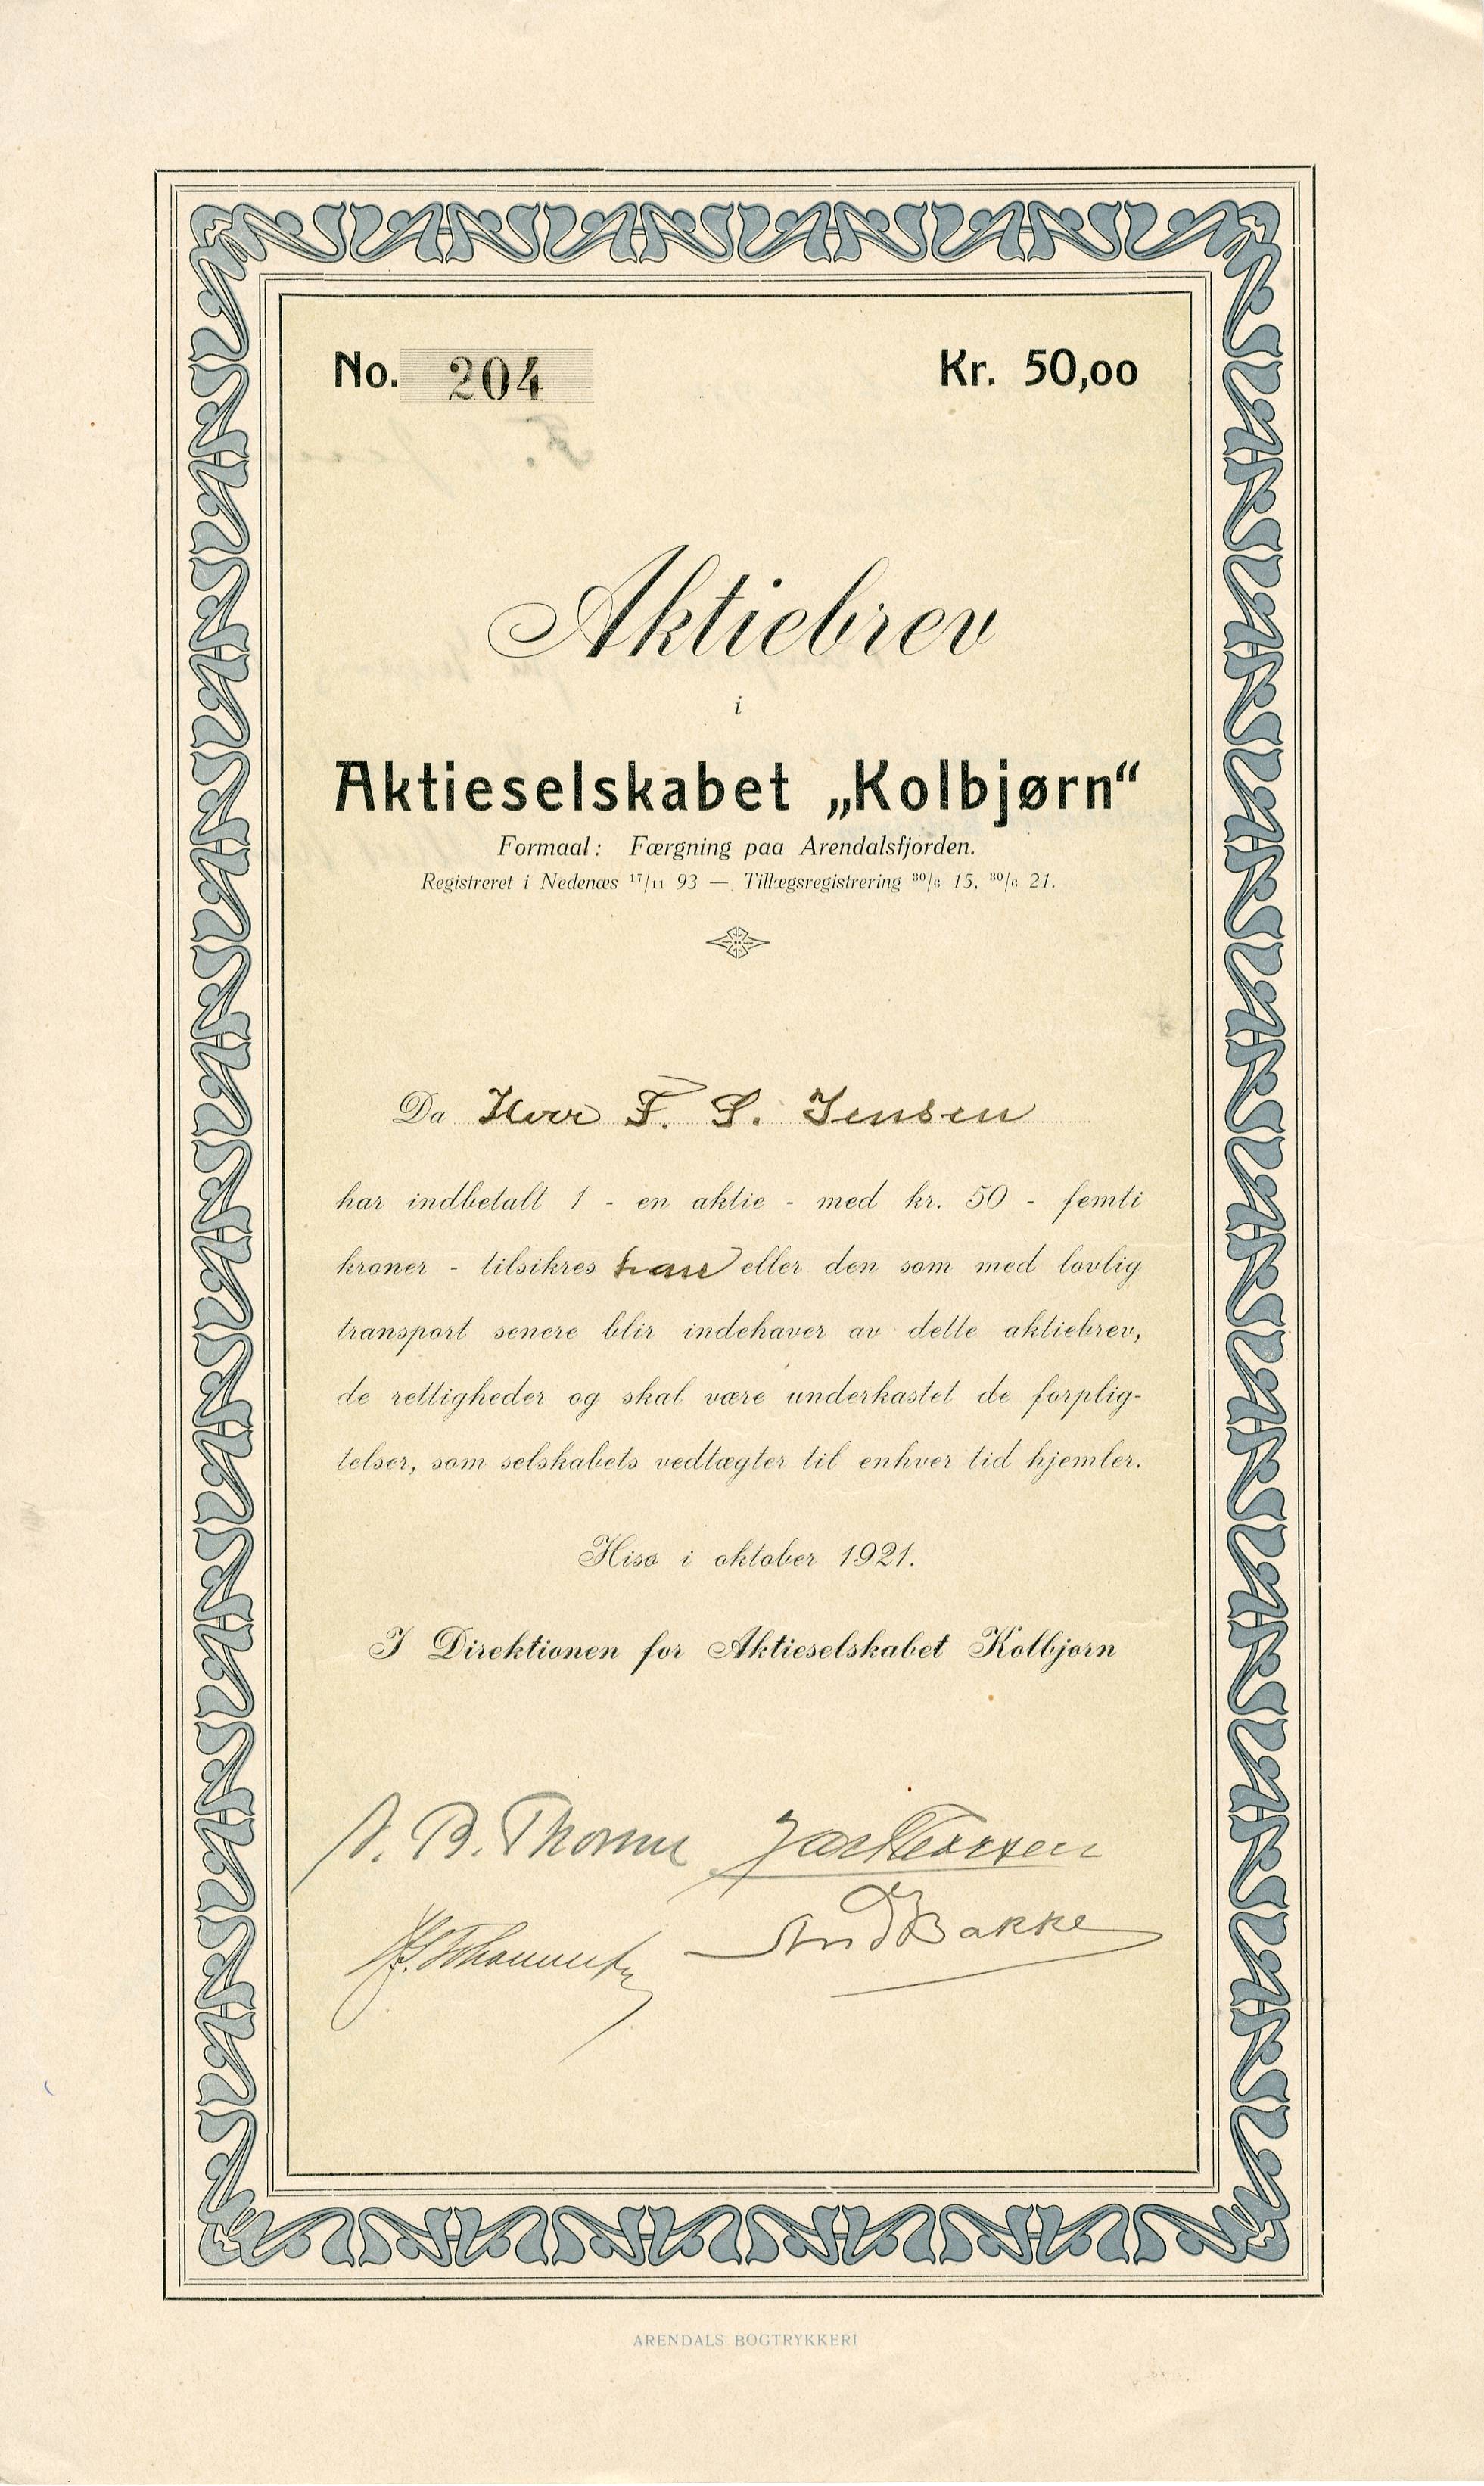 No. 204 Kr. 50,00
Aktiebrev
i
Aktieselskabet „Kolbjørn“
Formaal: Færgning paa Arendalsfjorden.
Registreret i Nedenæs 17/11 93 — Tillægsregistrering 30/6 15, 30/6 21.
Da Herr F. S. Jensen
har indbetalt 1 - en aktie - med kr. 50 - femti
kroner - tilsikres han eller den som med lovlig
transport senere blir indehaver av dette aktiebrev,
de rettigheder og skal være underkastet de forplig-
telser, som selskabets vedtægter til enhver tid hjemler.
Hisø i oktober 1921.
I Direktionen for Aktieselskabet Kolbjørn
A. B. Thorne
And Bakke
ARENDALS BOGTRYKKERI